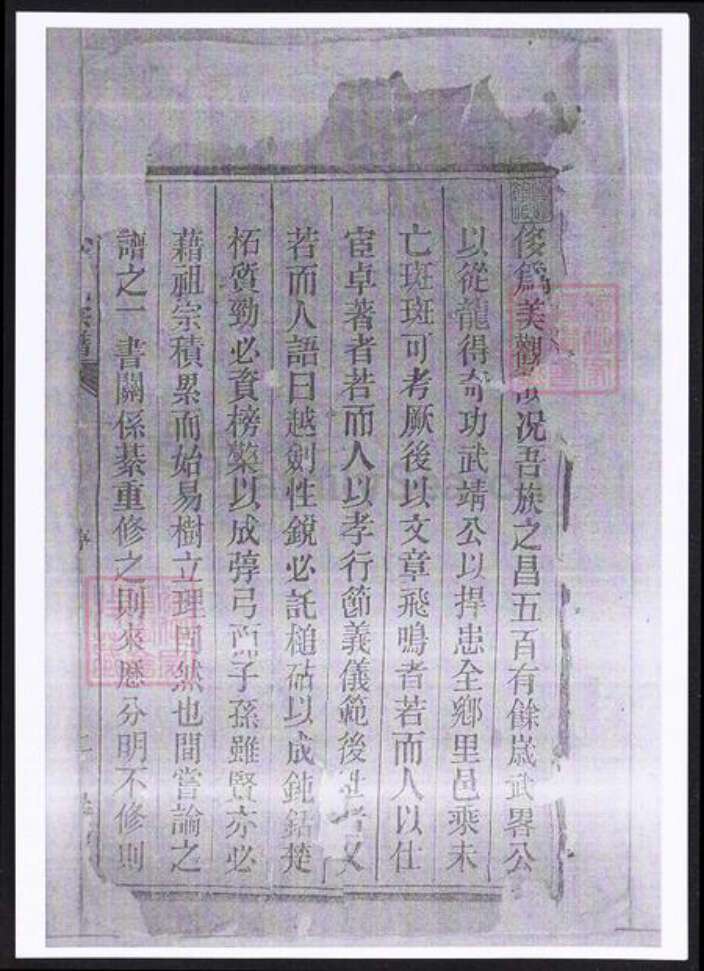 俊爲美觀哉況吾族之昌五百有餘歲武畧公
以從龍得奇功武靖公以捍患全鄉里邑乘未
亡斑斑可考厥後以文章飛鳴者若而人以仕
宦卓著者若而人以孝行節義儀範後世者又
若而人語曰越劍性銳必託槌砧以成鈍鋸楚
柘質勁必資榜檠以成彀弓而子孫雖賢亦必
藉祖宗積累而始易樹立理固然也間嘗論之
譜之一書關係綦重修之則來歷分明不修則
宗譜
序
二